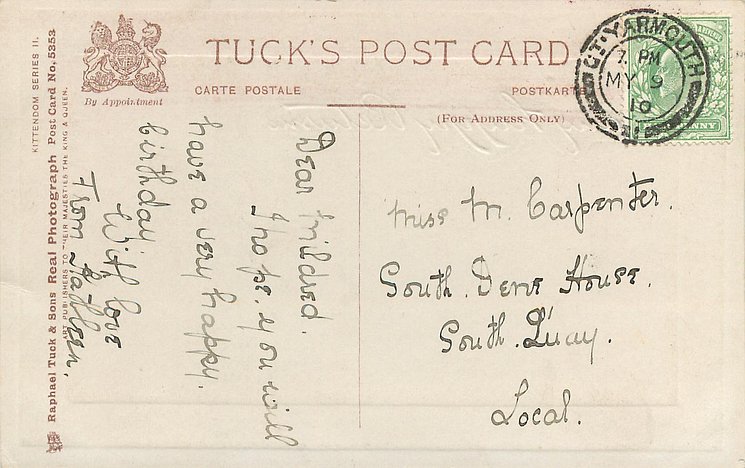 TUCK'S POST CARD
CARTE POSTALE
POSTKARTE
(FOR ADDRESS ONLY)
By Appointment
KITTENDOM SERIES II.
Raphael Tuck & Sons Real Photograph Post Card No, 5353
ART PUBLISHERS TO THEIR MAJESTIES THE KING & QUEEN.
GT. YARMOUTH
7. PM
MY 9
10
PENNY
Dear Mildred.
I hope. you will
have a very happy.
birthday
With love
From
Miss M. Carpenter.
South. Dene House.
South. Quay.
Local.